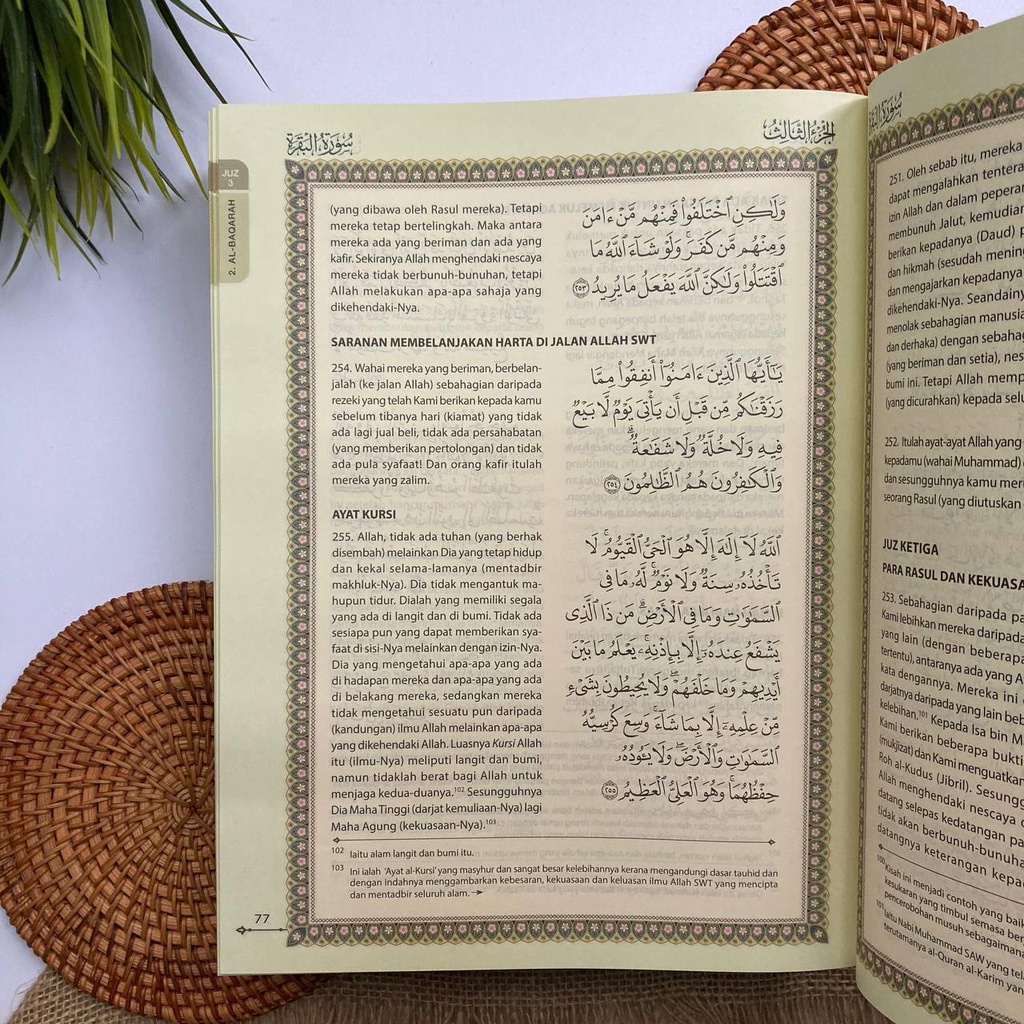 سورة البقرة
الجزء الثالث
JUZ
3
2. AL-BAQARAH
(yang dibawa oleh Rasul mereka). Tetapi
mereka tetap bertelingkah. Maka antara
mereka ada yang beriman dan ada yang
kafir. Sekiranya Allah menghendaki nescaya
mereka tidak berbunuh-bunuhan, tetapi
Allah melakukan apa-apa sahaja yang
dikehendaki-Nya.
وَلَٰكِنِ ٱخْتَلَفُوا۟ فَمِنْهُم مَّنْ ءَامَنَ
وَمِنْهُم مَّن كَفَرَ ۚ وَلَوْ شَآءَ ٱللَّهُ مَا
ٱقْتَتَلُوا۟ وَلَٰكِنَّ ٱللَّهَ يَفْعَلُ مَا يُرِيدُ ٢٥٣
SARANAN MEMBELANJAKAN HARTA DI JALAN ALLAH SWT
254. Wahai mereka yang beriman, berbelan-
jalah (ke jalan Allah) sebahagian daripada
rezeki yang telah Kami berikan kepada kamu
sebelum tibanya hari (kiamat) yang tidak
ada lagi jual beli, tidak ada persahabatan
(yang memberikan pertolongan) dan tidak
ada pula syafaat! Dan orang kafir itulah
mereka yang zalim.
يَٰٓأَيُّهَا ٱلَّذِينَ ءَامَنُوٓا۟ أَنفِقُوا۟ مِمَّا
رَزَقْنَٰكُم مِّن قَبْلِ أَن يَأْتِىَ يَوْمٌ لَّا بَيْعٌ
فِيهِ وَلَا خُلَّةٌ وَلَا شَفَٰعَةٌ ۗ
وَٱلْكَٰفِرُونَ هُمُ ٱلظَّٰلِمُونَ ٢٥٤
AYAT KURSI
255. Allah, tidak ada tuhan (yang berhak
disembah) melainkan Dia yang tetap hidup
dan kekal selama-lamanya (mentadbir
makhluk-Nya). Dia tidak mengantuk ma-
hupun tidur. Dialah yang memiliki segala
yang ada di langit dan di bumi. Tidak ada
sesiapa pun yang dapat memberikan sya-
faat di sisi-Nya melainkan dengan izin-Nya.
Dia yang mengetahui apa-apa yang ada
di hadapan mereka dan apa-apa yang ada
di belakang mereka, sedangkan mereka
tidak mengetahui sesuatu pun daripada
(kandungan) ilmu Allah melainkan apa-apa
yang dikehendaki Allah. Luasnya Kursi Allah
itu (ilmu-Nya) meliputi langit dan bumi,
namun tidaklah berat bagi Allah untuk
menjaga kedua-duanya.102 Sesungguhnya
Dia Maha Tinggi (darjat kemuliaan-Nya) lagi
Maha Agung (kekuasaan-Nya).103
ٱللَّهُ لَآ إِلَٰهَ إِلَّا هُوَ ٱلْحَىُّ ٱلْقَيُّومُ ۚ لَا
تَأْخُذُهُۥ سِنَةٌ وَلَا نَوْمٌ ۚ لَّهُۥ مَا فِى
ٱلسَّمَٰوَٰتِ وَمَا فِى ٱلْأَرْضِ ۗ مَن ذَا ٱلَّذِى
يَشْفَعُ عِندَهُۥٓ إِلَّا بِإِذْنِهِۦ ۚ يَعْلَمُ مَا بَيْنَ
أَيْدِيهِمْ وَمَا خَلْفَهُمْ ۖ وَلَا يُحِيطُونَ بِشَىْءٍ
مِّنْ عِلْمِهِۦٓ إِلَّا بِمَا شَآءَ ۚ وَسِعَ كُرْسِيُّهُ
ٱلسَّمَٰوَٰتِ وَٱلْأَرْضَ ۖ وَلَا يَـُٔودُهُۥ
حِفْظُهُمَا ۚ وَهُوَ ٱلْعَلِىُّ ٱلْعَظِيمُ ٢٥٥
102 Iaitu alam langit dan bumi itu.
103 Ini ialah 'Ayat al-Kursi' yang masyhur dan sangat besar kelebihannya kerana mengandungi dasar tauhid dan
dengan indahnya menggambarkan kebesaran, kekuasaan dan keluasan ilmu Allah SWT yang mencipta
dan mentadbir seluruh alam. →
77
سورة
251. Oleh sebab itu, mereka
dapat mengalahkan tentera
izin Allah dan dalam pepera
membunuh Jalut, kemudian
berikan kepadanya (Daud)
dan hikmah (sesudah mening
dan mengajarkan kepadanya
dikehendaki-Nya. Seandainy
menolak sebahagian manusia
dan derhaka) dengan sebahag
(yang beriman dan setia), nes
bumi ini. Tetapi Allah memp
(yang dicurahkan) kepada selu
252. Itulah ayat-ayat Allah yang
kepadamu (wahai Muhammad)
dan sesungguhnya kamu meru
seorang Rasul (yang diutuskan
JUZ KETIGA
PARA RASUL DAN KEKUASA
253. Sebahagian daripada pa
Kami lebihkan mereka daripada
yang lain (dengan beberapa
tertentu), antaranya ada yang A
kata dengannya. Mereka ini
darjatnya daripada yang lain beb
kelebihan.101 Kepada Isa bin M
Kami berikan beberapa bukti
(mukjizat) dan Kami menguatkan
Roh al-Kudus (Jibril). Sesungg
Allah menghendaki nescaya
datang selepas kedatangan pa
tidak akan berbunuh-bunuha
datangnya keterangan kepad
100 Kisah ini menjadi contoh yang baik
kesukaran yang timbul semasa ber
pencerobohan musuh sebagaimana
101 Iaitu Nabi Muhammad SAW yang tela
terutamanya al-Quran al-Karim yan